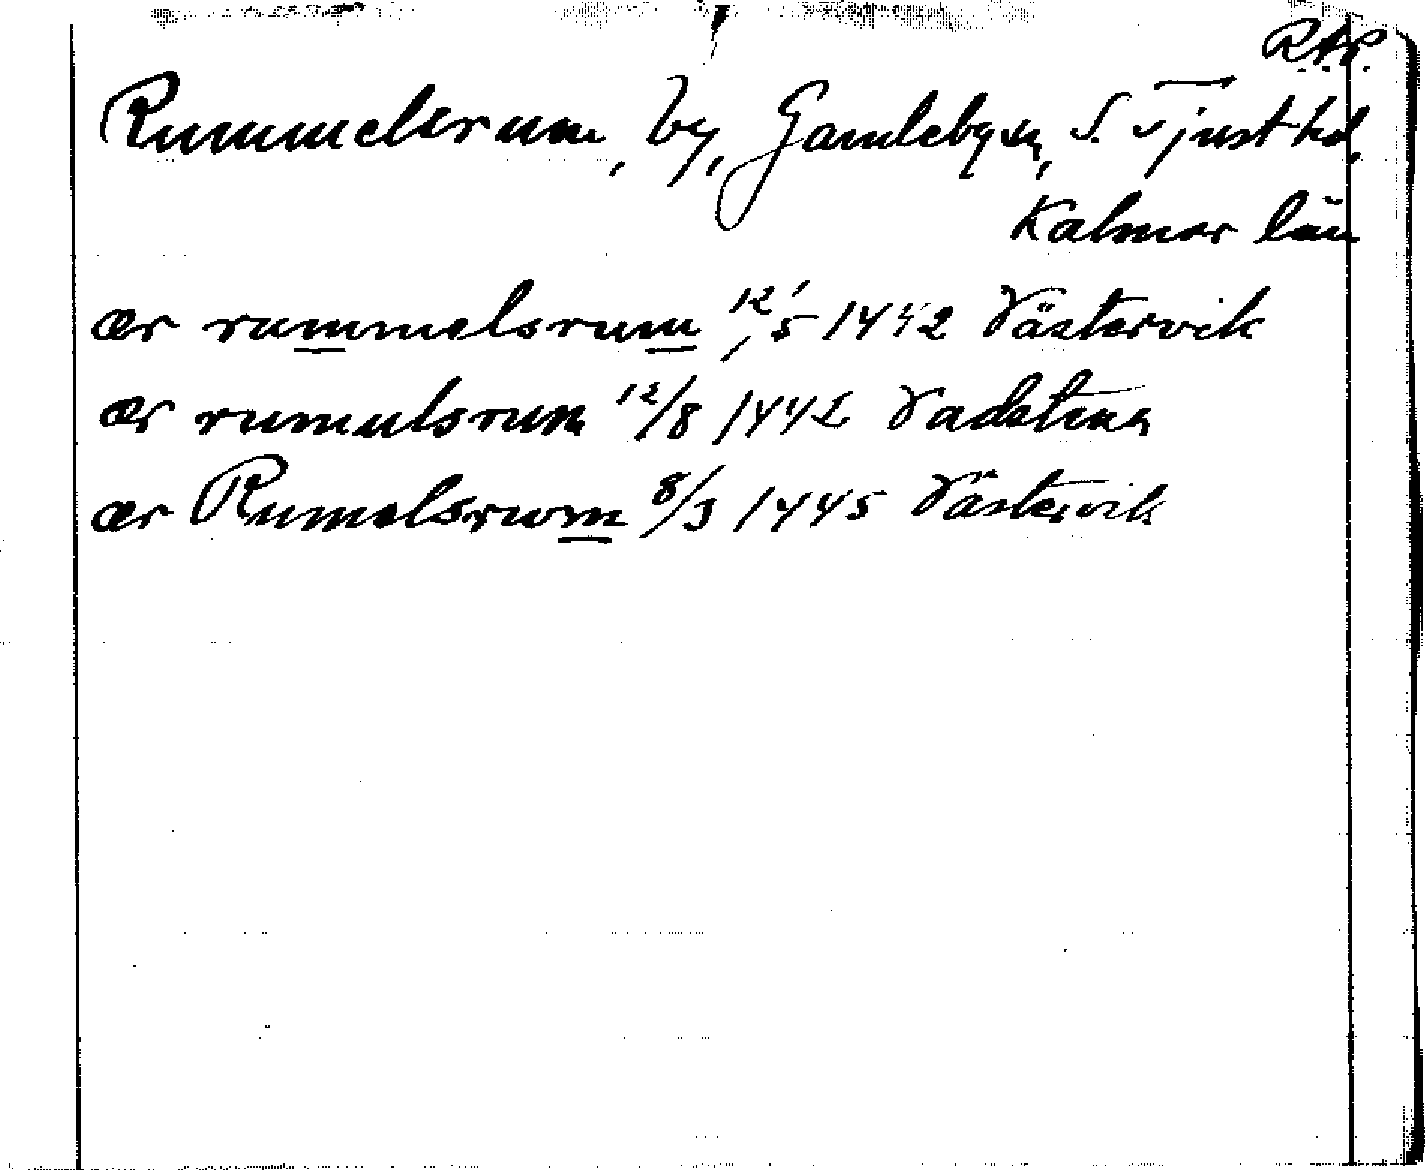 R.A.P.
Rummelsrum, by, Gamleby sn, S. Tjust hd,
Kalmar län
ær rummelsrum 12/5 1442 Västervik
ær rumulsrum 12/8 1442 Vadstena
ær Rumelsrwm 8/3 1445 Västervik